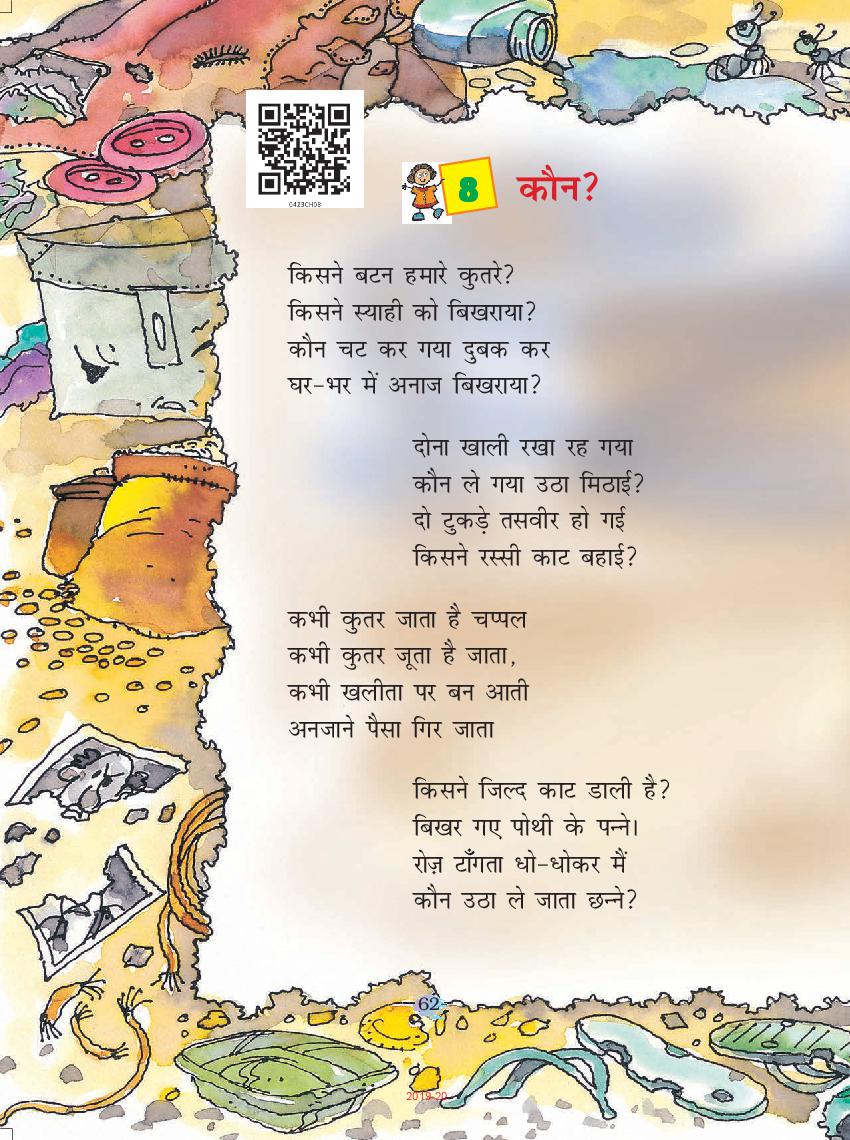 0423CH08
8 कौन?
किसने बटन हमारे कुतरे?
किसने स्याही को बिखराया?
कौन चट कर गया दुबक कर
घर-भर में अनाज बिखराया?
दोना खाली रखा रह गया
कौन ले गया उठा मिठाई?
दो टुकड़े तसवीर हो गई
किसने रस्सी काट बहाई?
कभी कुतर जाता है चप्पल
कभी कुतर जूता है जाता,
कभी खलीता पर बन आती
अनजाने पैसा गिर जाता
किसने जिल्द काट डाली है?
बिखर गए पोथी के पन्ने।
रोज़ टाँगता धो-धोकर मैं
कौन उठा ले जाता छन्ने?
62
2019-20